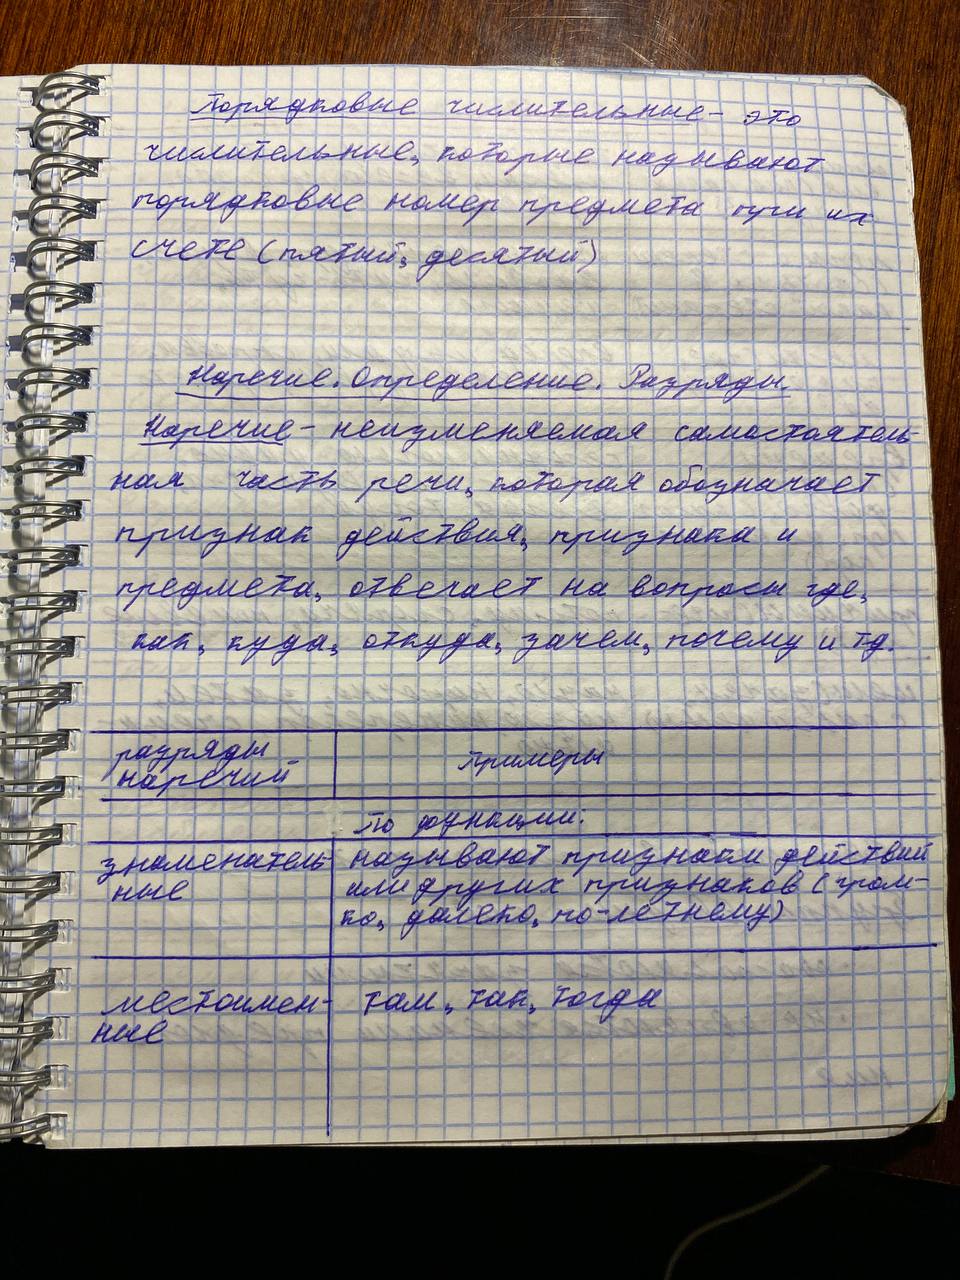 Порядковые числительные - это
числительные, которые называют
порядковые номер предмета при их
счете (пятый, десятый)
Наречие. Определение. Разряды.
Наречие - неизменяемая самостоятель-
ная часть речи, которая обозначает
признак действия, признака и
предмета, отвечает на вопросы где,
как, куда, откуда, зачем, почему и тд.
разряды
наречий
Примеры
По функции:
знаменатель-
ные
называют признаки действий
или других признаков (гром-
ко, далеко, по-летнему)
местоимен-
ные
там, так, тогда